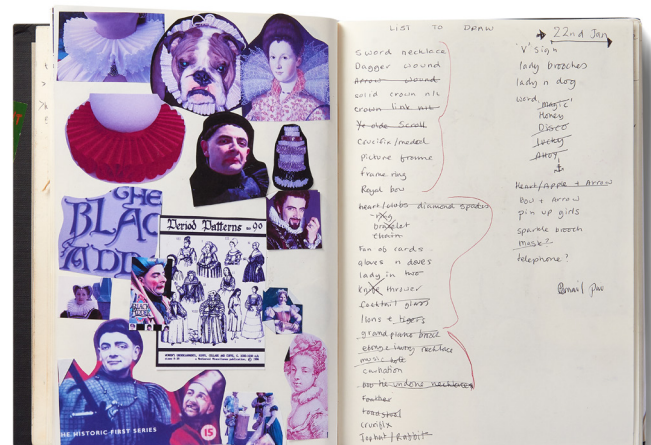 THE
BLAC
ADD
Period Patterns no 90
THE HISTORIC FIRST SERIES
15
LIST TO DRAW
Sword necklace
Dagger wound
Arrow wound
solid crown n/c
crown link n/c
Ye olde Scroll
crucifix/medal
picture frame
frame ring
Royal bow
heart/clubs diamond spades
ring
bracelet
chain
Fan of cards
gloves n doves
lady in two
Knife thrower
Cocktail glass
lions & tigers
grand piano
necklace
music
carnation
undone necklaces
Feather
toadstool
crucifix
Tophat/Rabbit
22nd Jan
'V' sign
lady brooches
lady n dog
word 'Magic'
Honey
Disco
Lucky
Ahoy
Heart/Apple + Arrow
Bow + arrow
pin up girls
sparkle brooch
mask?
telephone?